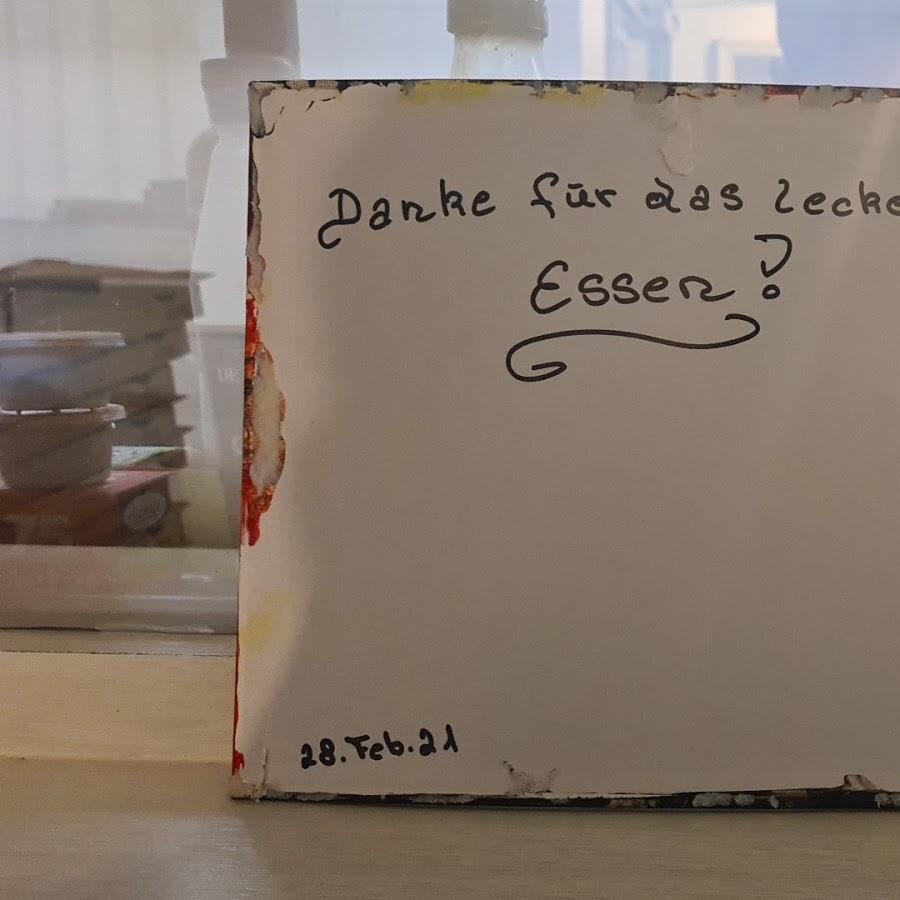 Danke für das lecke
Essen!
28.Feb.21